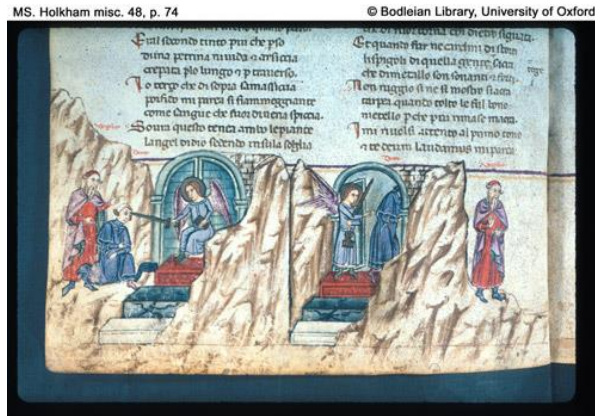 MS. Holkham misc. 48, p. 74
© Bodleian Library, University of Oxford
Era il secondo tinto piu che perso
duna petrina ruvida e arsiccia
crepata per lo lungo e per traverso.
Lo terço che di sopra samassiccia
porfido mi parea si fiammeggiante
come sangue che fuor di vena spiccia.
Soura questo tenea ambo le piante
langel di dio sedendo in su la soglia
Et quando fur ne cardini distorti
li spigoli di quella regge sacra
che di metallo son sonanti e forti.
Non ruggio si ne si mostro si acra
tarpea quando tolto le fu il bono
metello per che poi rimase macra.
I mi rivolsi attento al primo tono
e te deum laudamus mi parea